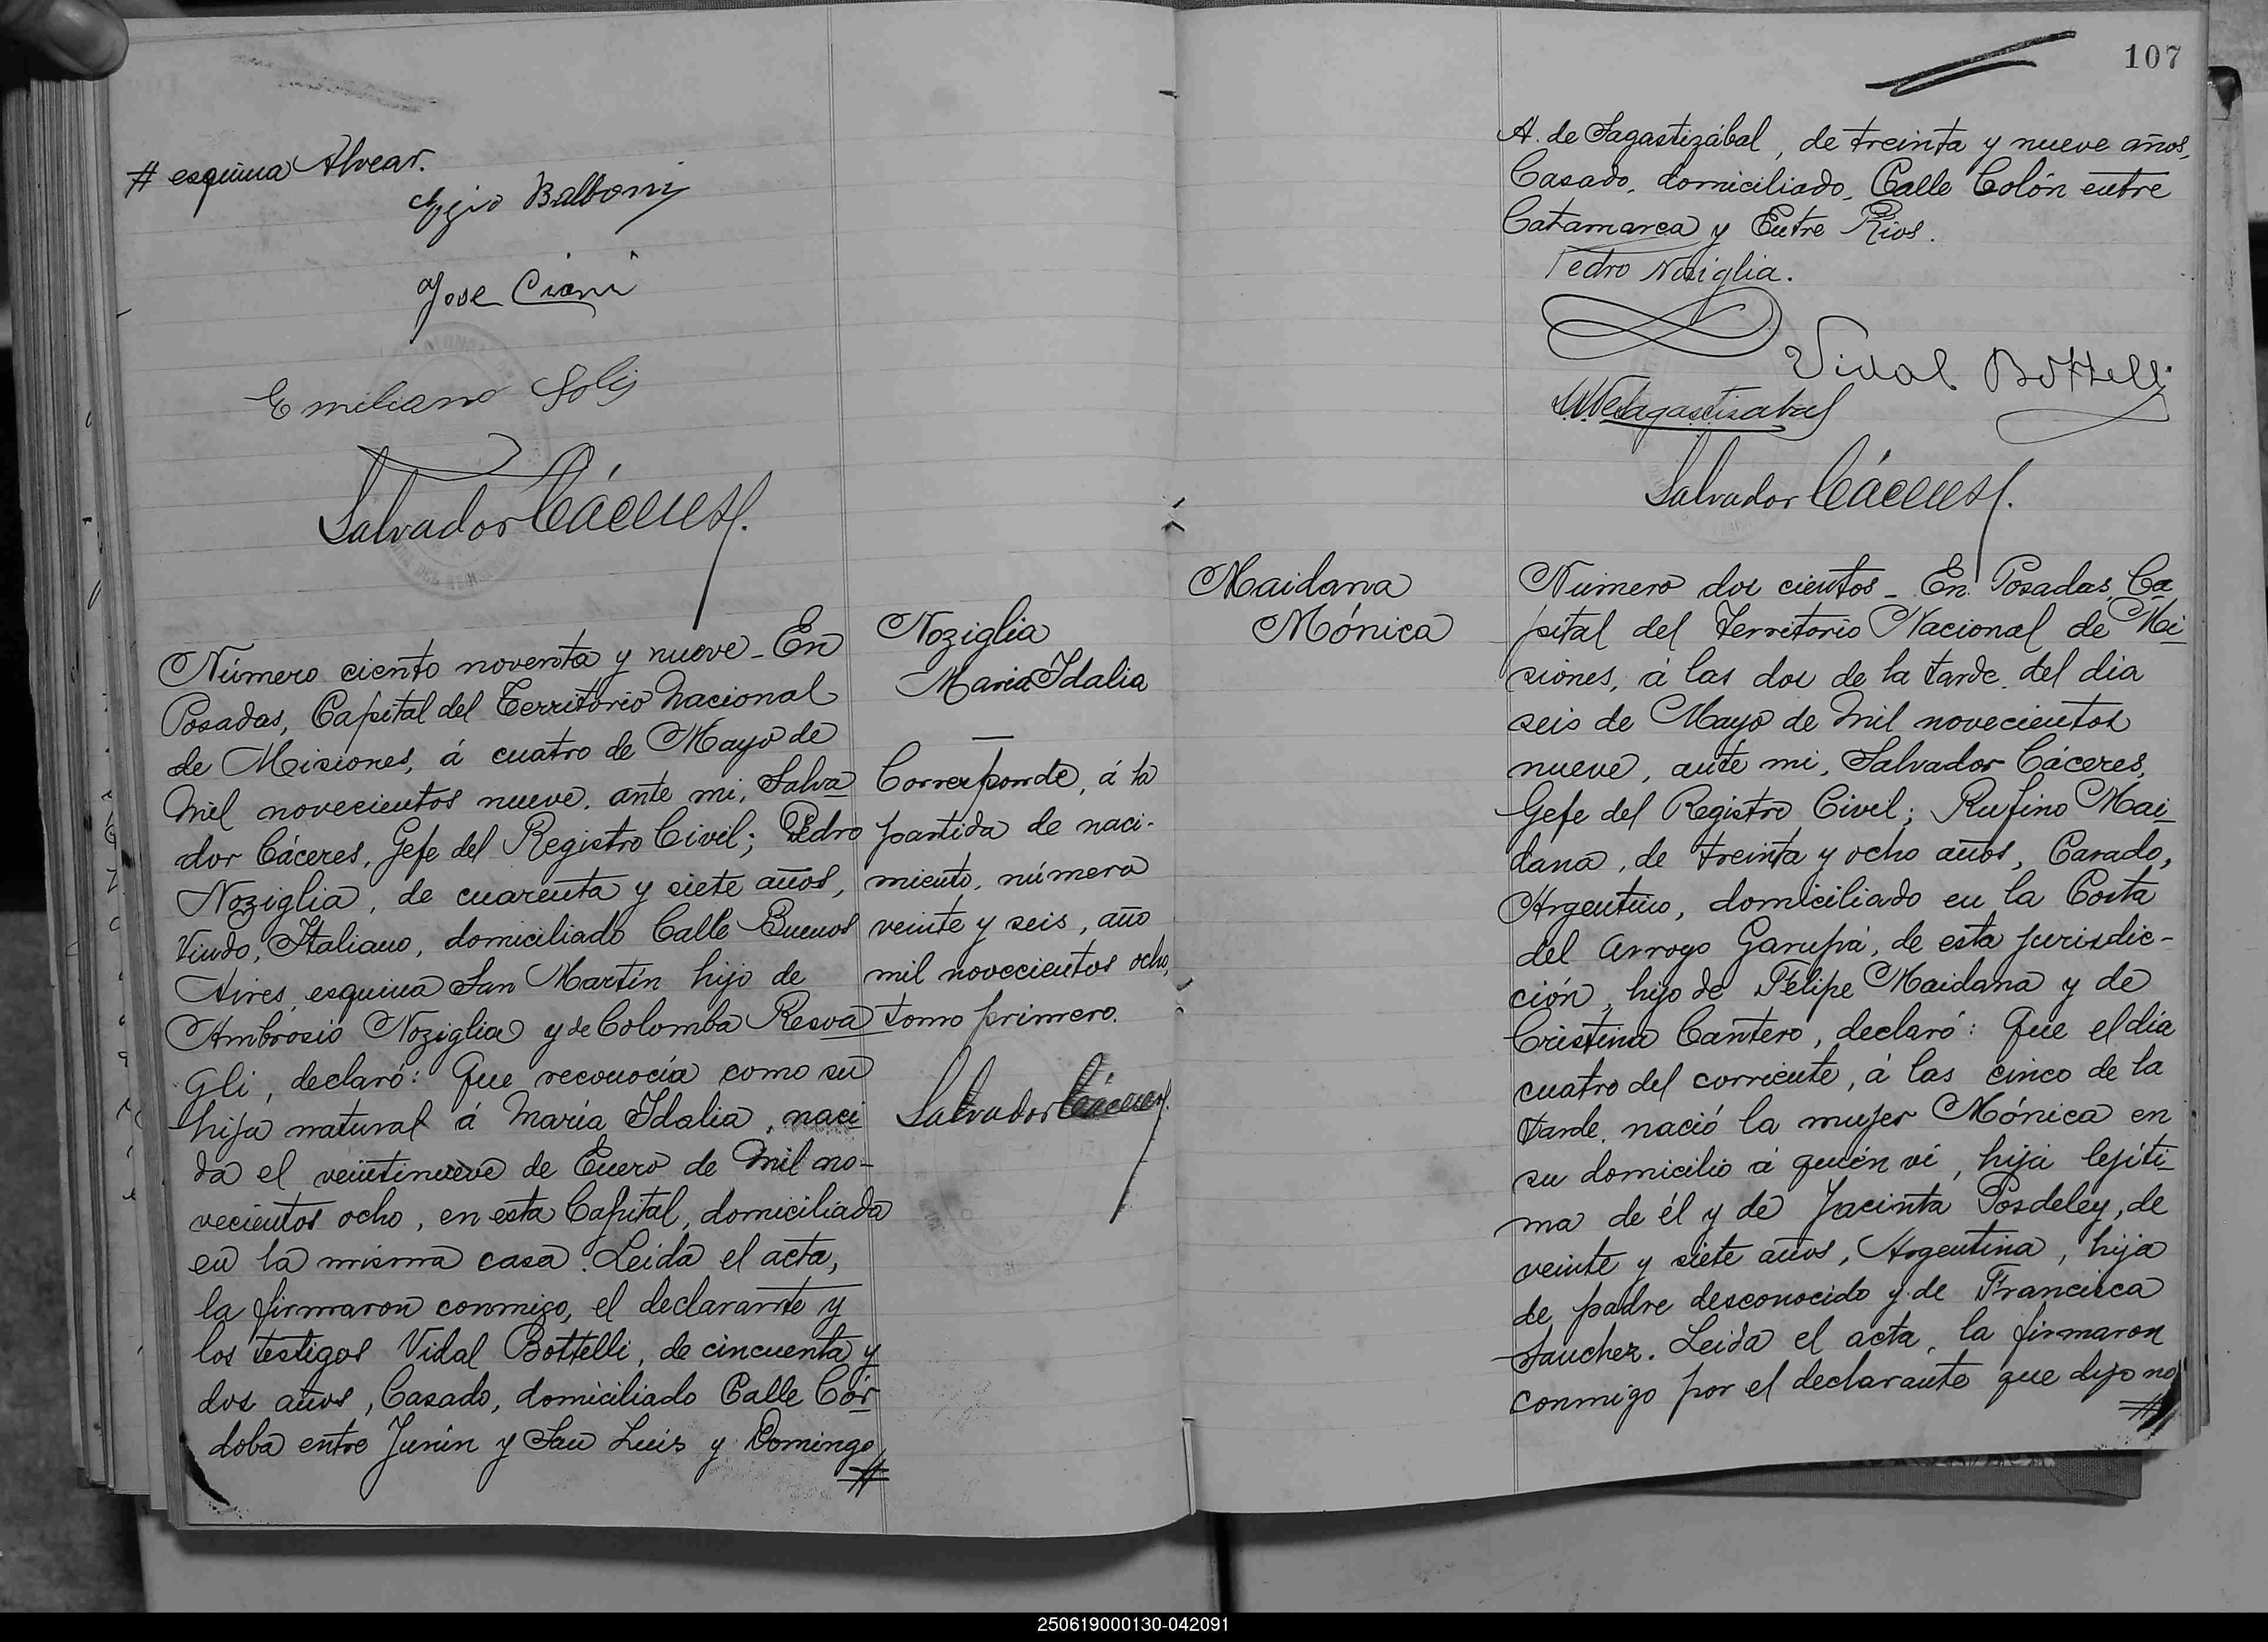 # esquina Alvear.
Balboni
Jose Ciani
Emiliano Solis
Salvador Cáceres.
Número ciento noventa y nueve - En
Posadas, Capital del Territorio Nacional
de Misiones, á cuatro de Mayo de
mil novecientos nueve, ante mi, Salva
dor Cáceres, Gefe del Registro Civil; Pedro
Noziglia, de cuarenta y siete años,
Viudo, Italiano, domiciliado Calle Buenos
Aires, esquina San Martín hijo de
Ambrosio Noziglia y de Colomba Resva
gli, declaró: Que reconocía como su
hija natural á María Idalia, naci
da el veintinueve de Enero de mil no-
vecientos ocho, en esta Capital, domiciliada
en la misma casa. Leida el acta,
la firmaron conmigo, el declarante y
los testigos Vidal Bottelli, de cincuenta y
dos años, Casado, domiciliado Calle Cór
doba entre Junín y San Luis y Domingo
#
Noziglia
María Idalia
Corresponde, á la
partida de naci-
miento, número
veinte y seis, año
mil novecientos ocho,
tomo primero.
Salvador Cáceres.
107
A. de Sagastizábal, de treinta y nueve años,
Casado, domiciliado, Calle Colón entre
Catamarca y Entre Rios.
Pedro Noziglia.
Vidal Bottelli
Sagastizabal
Salvador Cáceres.
Maidana
Mónica
Número dos cientos - En Posadas, Ca
pital del Territorio Nacional de Mi
siones, á las dos de la tarde, del dia
seis de Mayo de mil novecientos
nueve, ante mi, Salvador Cáceres,
Gefe del Registro Civil; Rufino Mai
dana, de treinta y ocho años, Casado,
Argentino, domiciliado en la Costa
del Arroyo Garupá, de esta jurisdic-
ción, hijo de Felipe Maidana y de
Cristina Cantero, declaró: Que el día
cuatro del corriente, á las cinco de la
tarde, nació la mujer Mónica en
su domicilio á quién ví, hija lejíti
ma de él y de Jacinta Posdeley, de
veinte y siete años, Argentina, hija
de padre desconocido y de Francisca
Sanchez. Leida el acta, la firmaron
conmigo por el declarante que dijo no
#
250619000130-042091